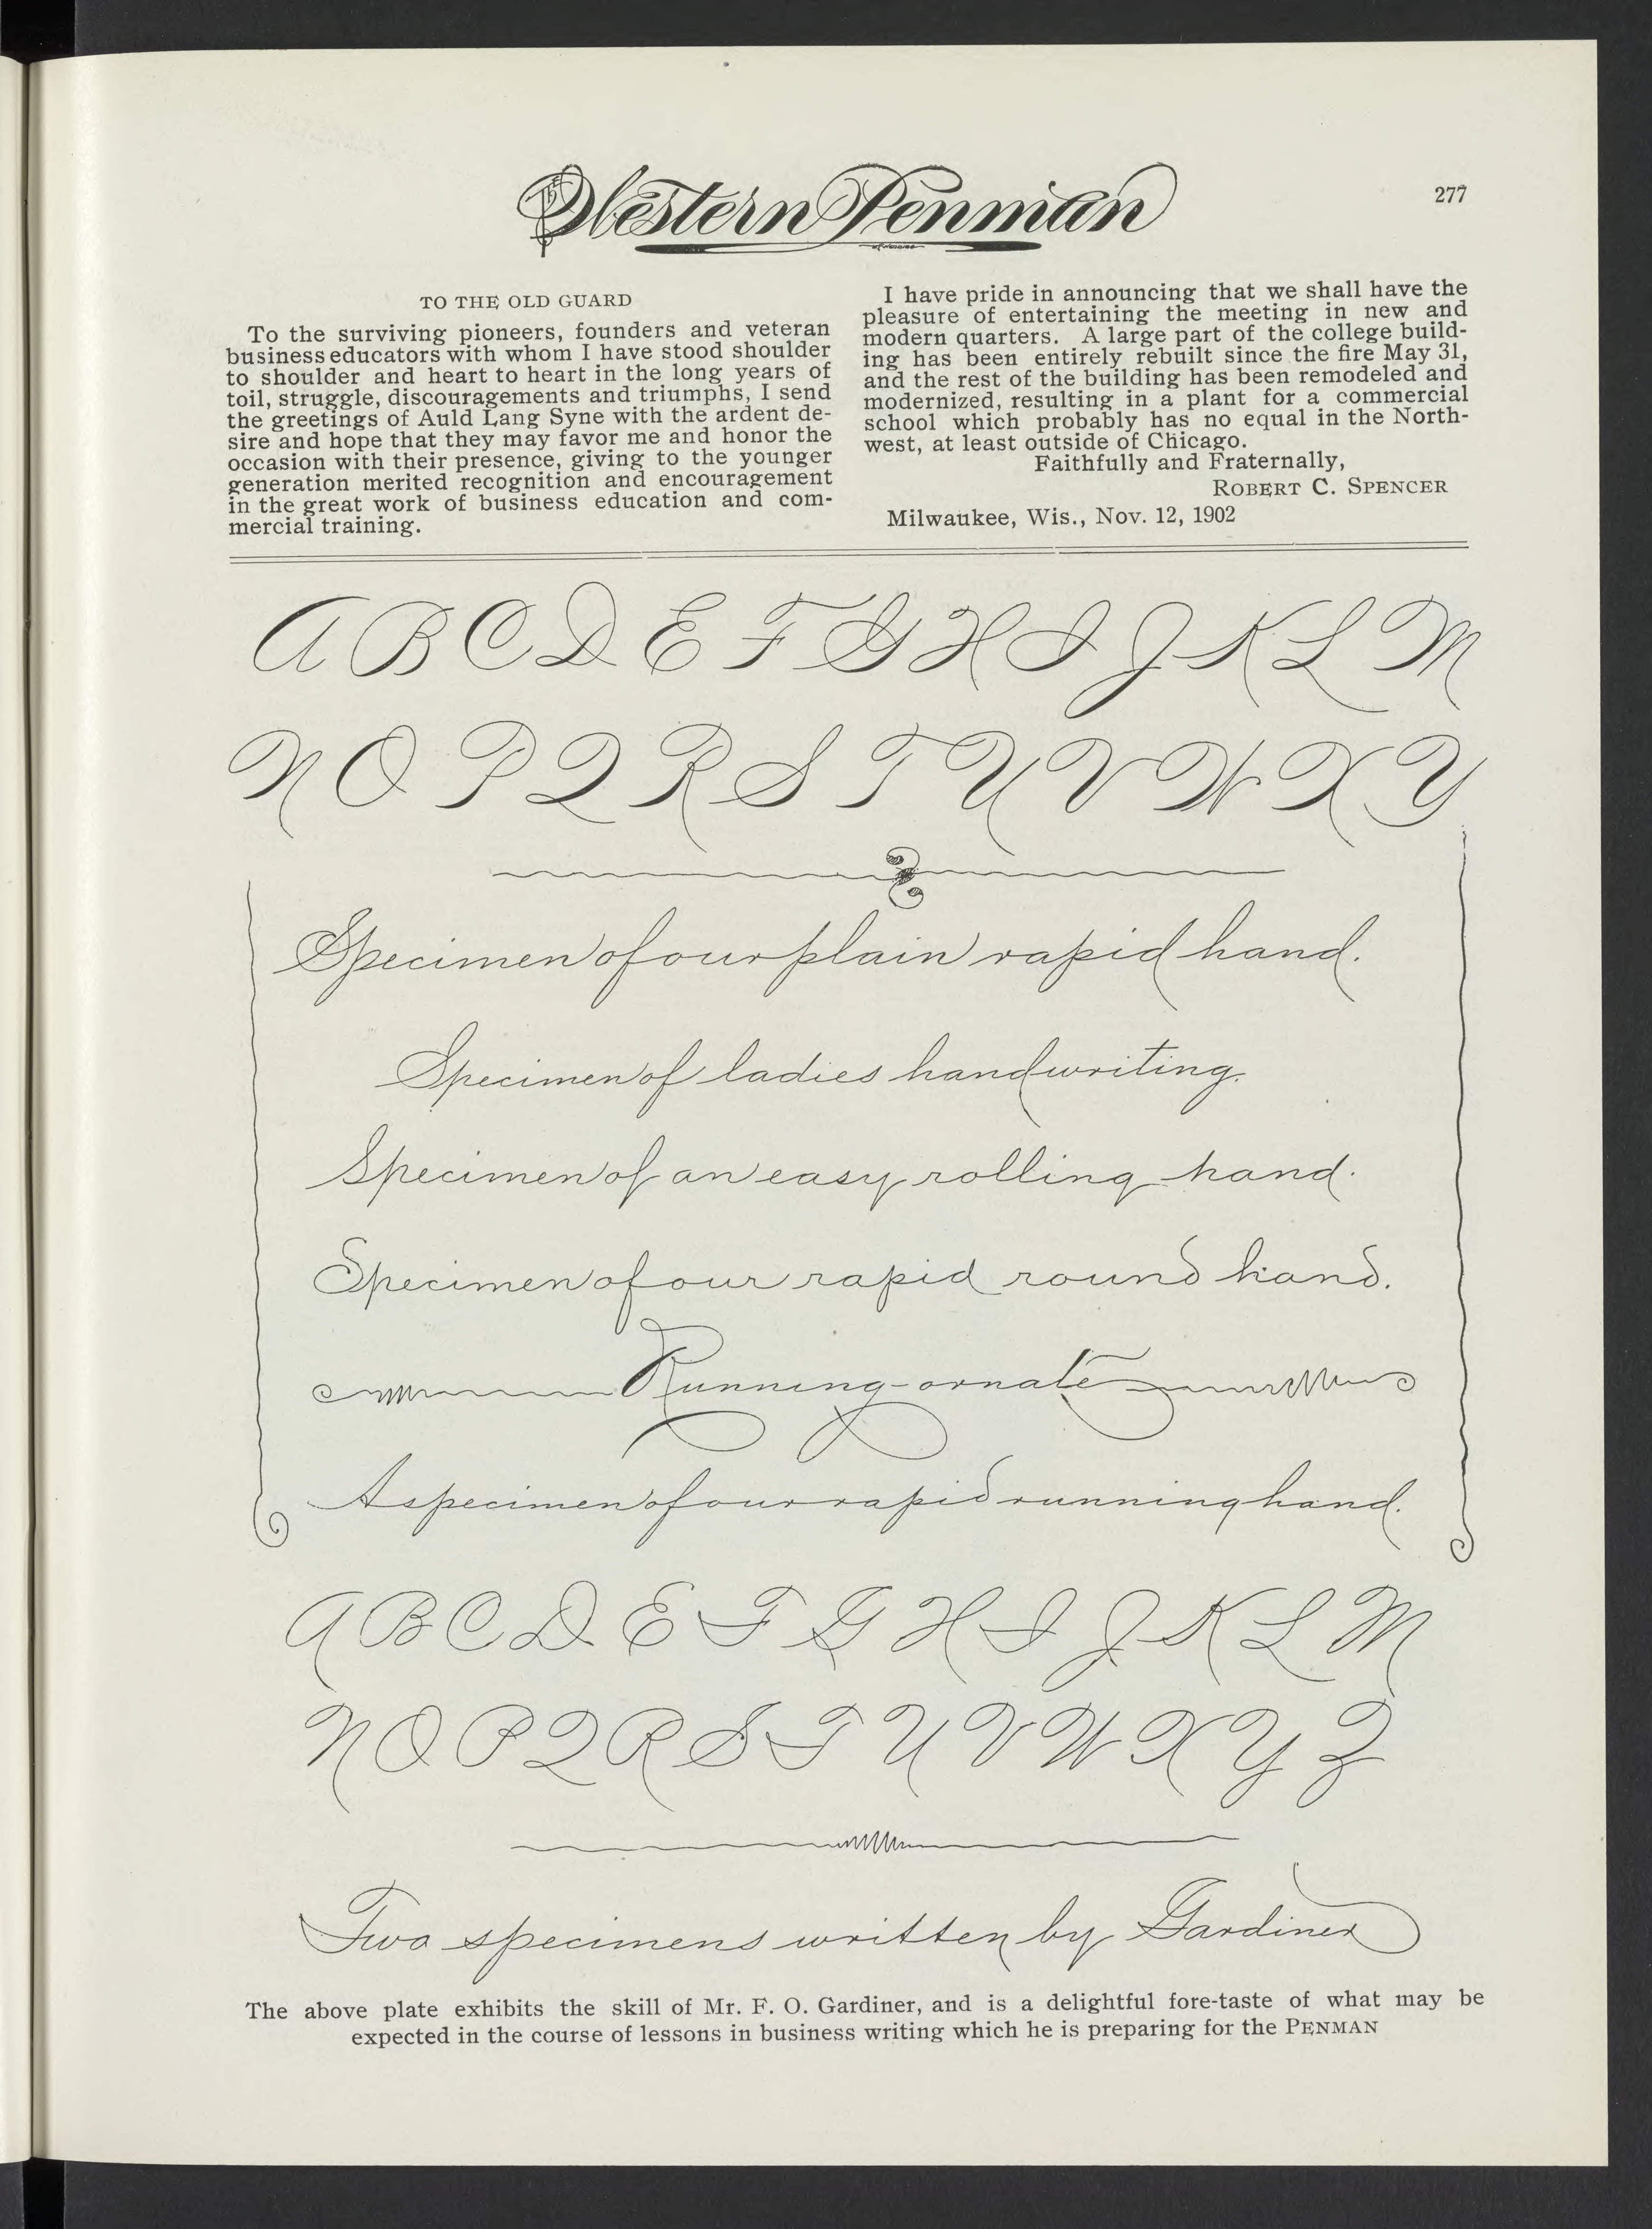 The Western Penman
277
TO THE OLD GUARD
To the surviving pioneers, founders and veteran
business educators with whom I have stood shoulder
to shoulder and heart to heart in the long years of
toil, struggle, discouragements and triumphs, I send
the greetings of Auld Lang Syne with the ardent de-
sire and hope that they may favor me and honor the
occasion with their presence, giving to the younger
generation merited recognition and encouragement
in the great work of business education and com-
mercial training.
I have pride in announcing that we shall have the
pleasure of entertaining the meeting in new and
modern quarters. A large part of the college build-
ing has been entirely rebuilt since the fire May 31,
and the rest of the building has been remodeled and
modernized, resulting in a plant for a commercial
school which probably has no equal in the North-
west, at least outside of Chicago.
Faithfully and Fraternally,
ROBERT C. SPENCER
Milwaukee, Wis., Nov. 12, 1902
A B C D E F G H I J K L M
N O P Q R S T U V W X Y
Specimen of our plain rapid hand.
Specimen of ladies handwriting.
Specimen of an easy rolling hand.
Specimen of our rapid round hand.
Running-ornate
A specimen of our rapid running hand.
A B C D E F G H I J K L M
N O P Q R S T U V W X Y Z
Two specimens written by Gardiner
The above plate exhibits the skill of Mr. F. O. Gardiner, and is a delightful fore-taste of what may be
expected in the course of lessons in business writing which he is preparing for the PENMAN